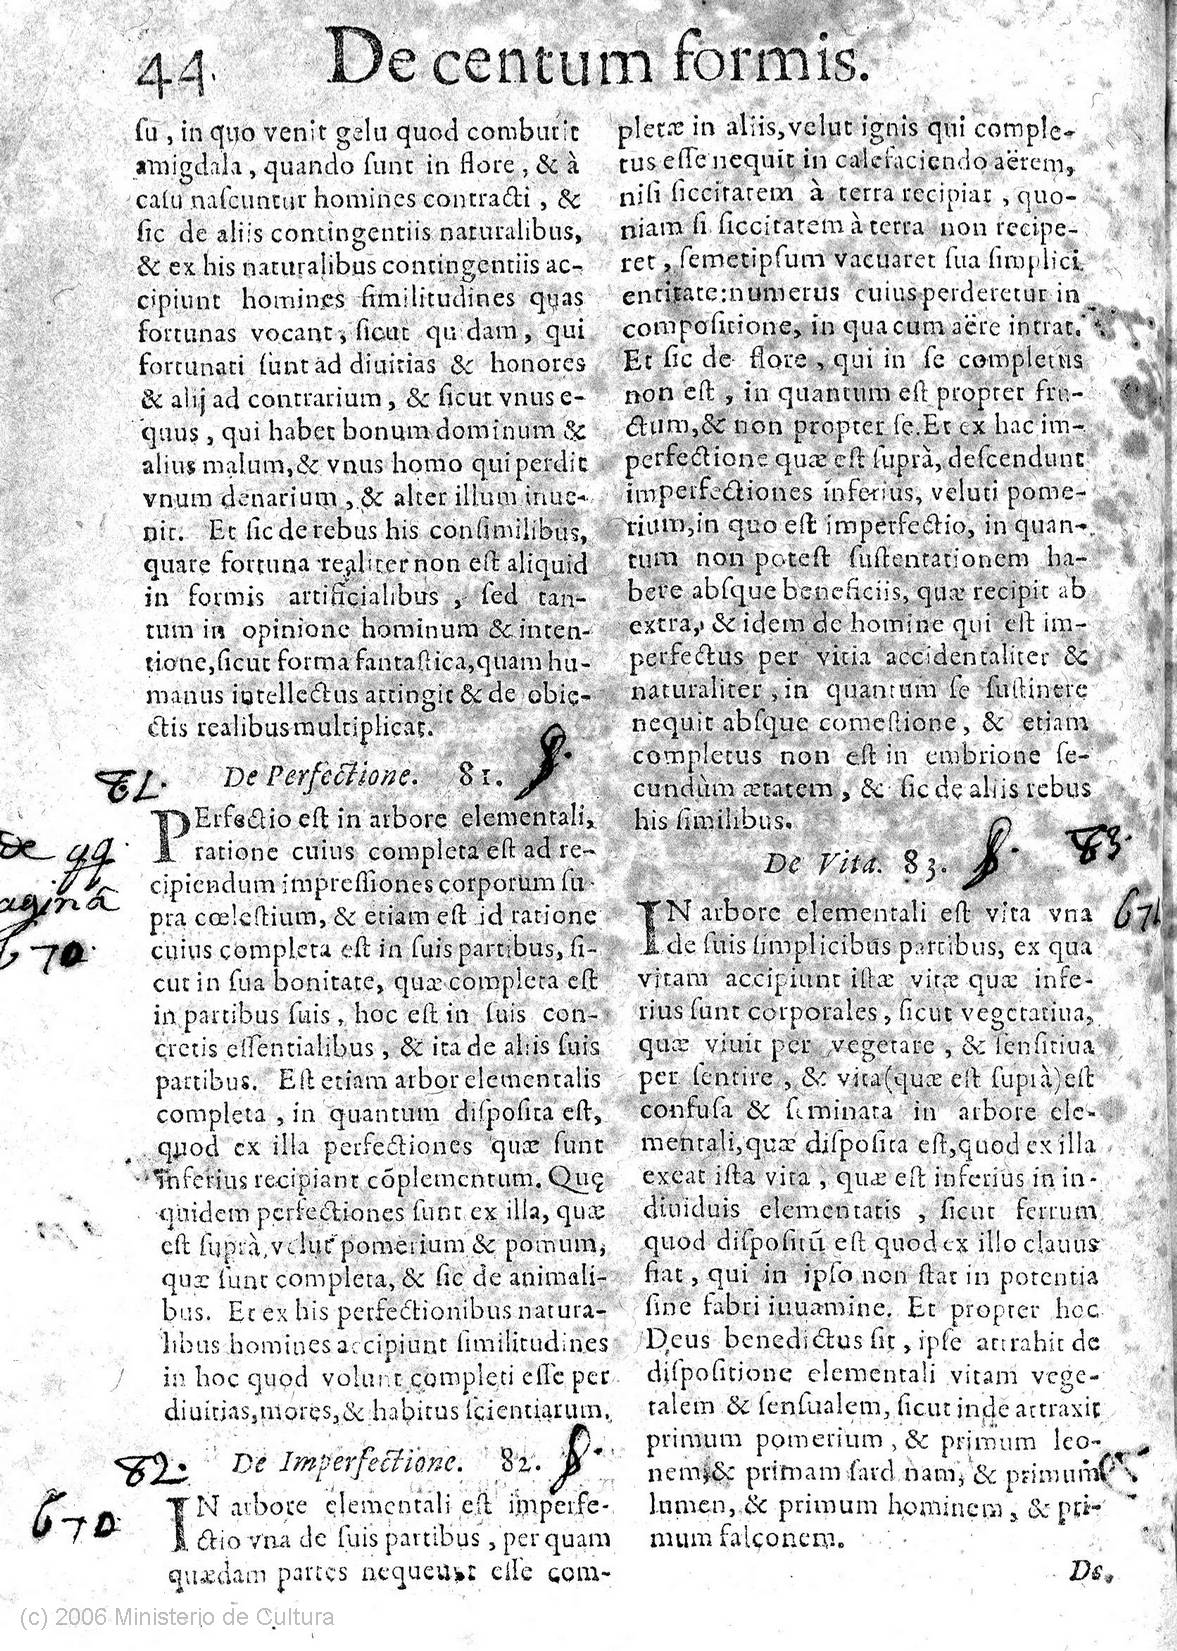 44.
De centum formis.
ſu, in quo venit gelu quod comburit
amigdala, quando ſunt in flore, & à
caſu naſcuntur homines contracti, &
ſic de aliis contingentiis naturalibus,
& ex his naturalibus contingentiis ac-
cipiunt homines ſimilitudines quas
fortunas vocant, ſicut qu dam, qui
fortunati ſunt ad diuitias & honores
& alij ad contrarium, & ſicut vnus e-
quus, qui habet bonum dominum &
alius malum, & vnus homo qui perdit
vnum denarium, & alter illum inue-
nit. Et ſic de rebus his conſimilibus,
quare fortuna realiter non eſt aliquid
in formis artificialibus, ſed tan-
tum in opinione hominum & inten-
tione, ſicut forma fantaſtica, quam hu-
manus intellectus attingit & de obie-
ctis realibus multiplicat.
81. De Perfectione. 81.
PErfectio eſt in arbore elementali,
ratione cuius completa eſt ad re-
cipiendum impreſſiones corporum ſu-
pra cœleſtium, & etiam eſt id ratione
cuius completa eſt in ſuis partibus, ſi-
cut in ſua bonitate, quæ completa eſt
in partibus ſuis, hoc eſt in ſuis con-
cretis eſſentialibus, & ita de aliis ſuis
partibus. Eſt etiam arbor elementalis
completa, in quantum diſpoſita eſt,
quod ex illa perfectiones quæ ſunt
inferius recipiant cõplementum. Quę
quidem perfectiones ſunt ex illa, quæ
eſt ſuprà, velut pomerium & pomum,
quæ ſunt completa, & ſic de animali-
bus. Et ex his perfectionibus natura-
libus homines accipiunt ſimilitudines
in hoc quod volunt completi eſſe per
diuitias, mores, & habitus ſcientiarum.
82. De Imperfectione. 82.
670
IN arbore elementali eſt imperfe-
ctio vna de ſuis partibus, per quam
quædam partes nequeunt eſſe com-
pletæ in aliis, velut ignis qui comple-
tus eſſe nequit in calefaciendo aërem,
niſi ſiccitatem à terra recipiat, quo-
niam ſi ſiccitatem à terra non recipe-
ret, ſemetipſum vacuaret ſua ſimplici
entitate: numerus cuius perderetur in
compoſitione, in qua cum aëre intrat.
Et ſic de flore, qui in ſe completus
non eſt, in quantum eſt propter fru-
ctum, & non propter ſe. Et ex hac im-
perfectione quæ eſt ſuprà, deſcendunt
imperfectiones inferius, veluti pome-
rium, in quo eſt imperfectio, in quan-
tum non poteſt ſuſtentationem ha-
bere abſque beneficiis, quæ recipit ab
extra, & idem de homine qui eſt im-
perfectus per vitia accidentaliter &
naturaliter, in quantum ſe ſuſtinere
nequit abſque comeſtione, & etiam
completus non eſt in embrione ſe-
cundùm ætatem, & ſic de aliis rebus
his ſimilibus.
De Vita. 83. 83.
IN arbore elementali eſt vita vna
de ſuis ſimplicibus partibus, ex qua
vitam accipiunt iſtæ vitæ quæ infe-
rius ſunt corporales, ſicut vegetatiua,
quæ viuit per vegetare, & ſenſitiua
per ſentire, & vita (quæ eſt ſuprà) eſt
confuſa & ſeminata in arbore ele-
mentali, quæ diſpoſita eſt, quod ex illa
exeat iſta vita, quæ eſt inferius in in-
diuiduis elementatis, ſicut ferrum
quod diſpoſitũ eſt quod ex illo clauus
fiat, qui in ipſo non ſtat in potentia
ſine fabri iuuamine. Et propter hoc
Deus benedictus ſit, ipſe attrahit de
diſpoſitione elementali vitam vege-
talem & ſenſualem, ſicut inde attraxit
primum pomerium, & primum leo-
nem, & primam ſard nam, & primum
lumen, & primum hominem, & pri-
mum falconem.
De
de 99.
pagina
670.
(c) 2006 Ministerio de Cultura